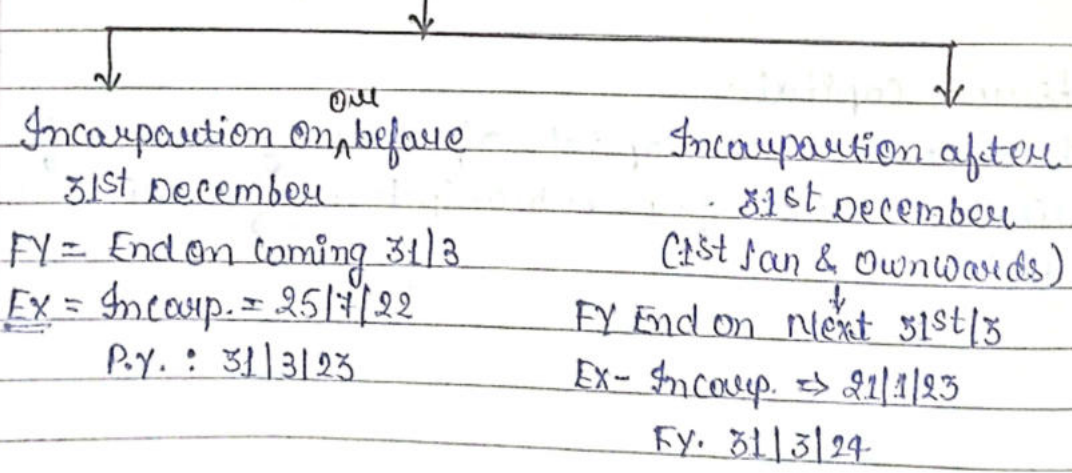 Incorporation on or before
31st December
FY = End on Coming 31/3
Ex = Incorp. = 25/7/22
P.Y. : 31/3/23
Incorporation after
31st December
(1st Jan & Ownwards)
FY End on Next 31st/3
Ex- Incorp. ⇒ 21/1/23
Fy. 31/3/24